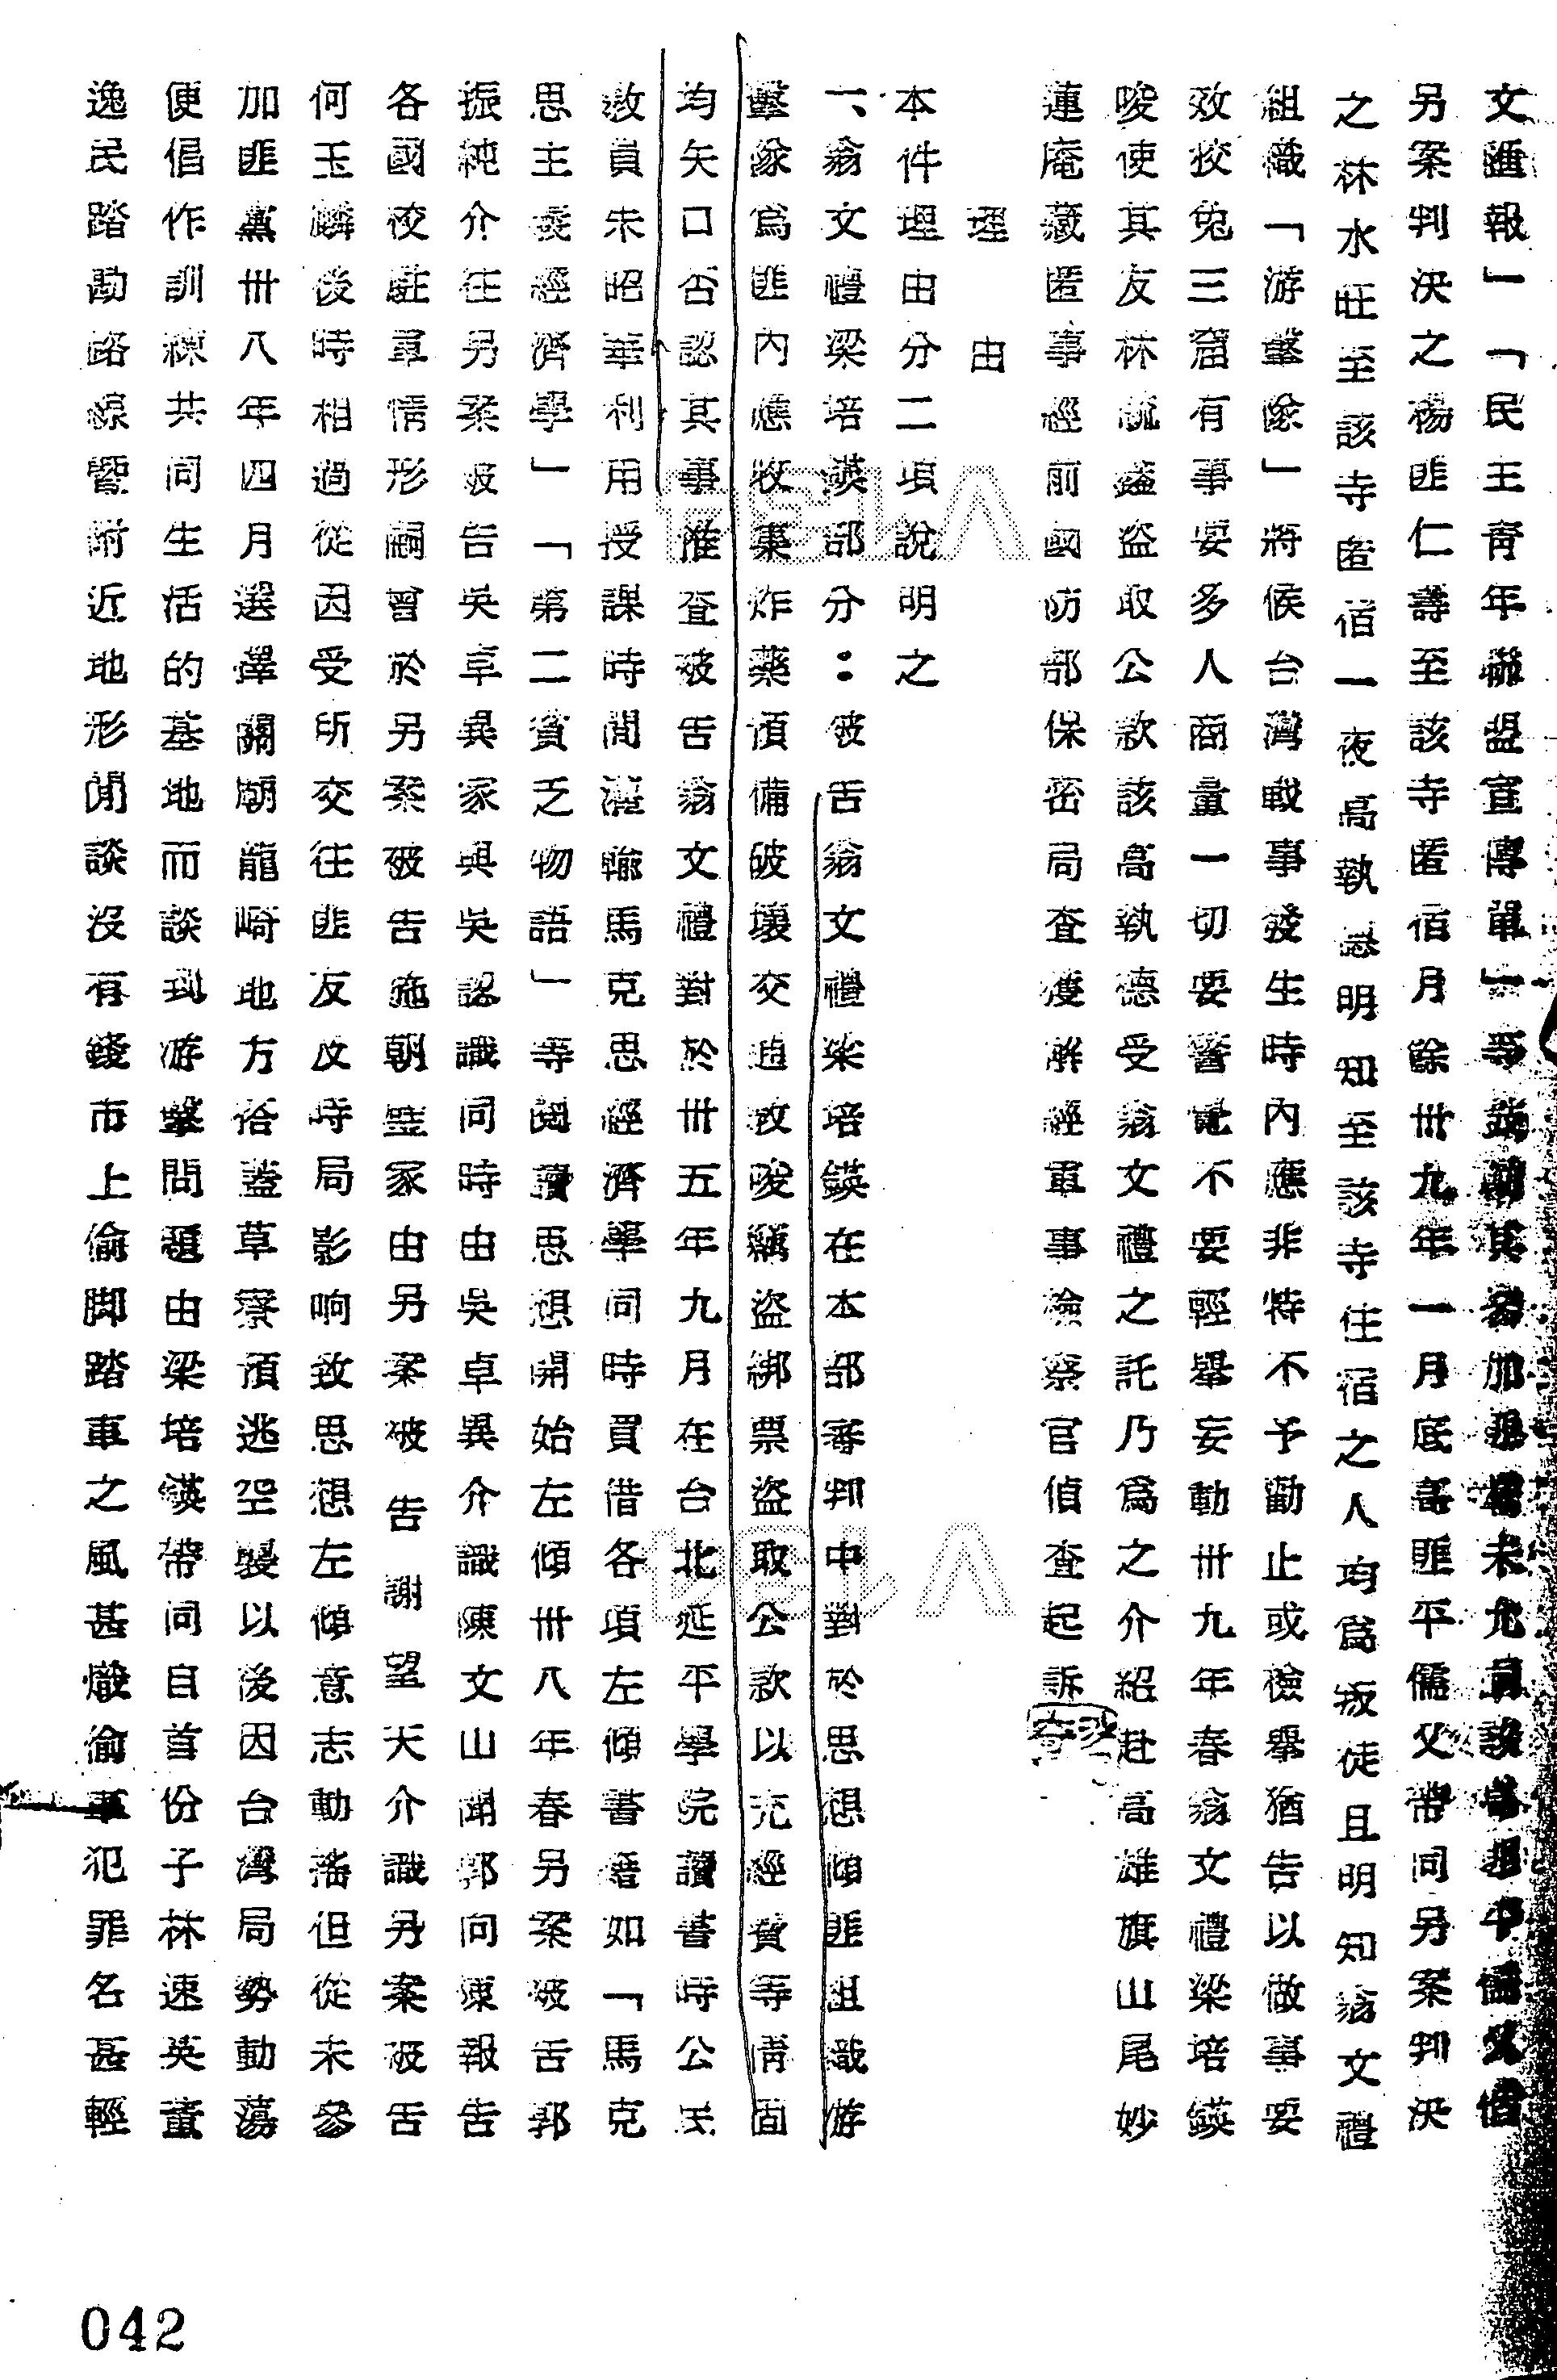 文匯報」「民王青年聯盟宣傳單」等 其 加 未允 平儒又偕
另案判決之楊匪仁壽至該寺匿宿月餘卅九年一月底高匪平儒又帶同另案判決
之林水旺至該寺匿宿一夜高執德明知至該寺住宿之人均為叛徒且明知翁文禮
組織「游擊隊」將候台灣戰事發生時內應非特不予勸止或檢舉猶告以做事要
效狡兔三窟有事要多人商量一切要審慎不要輕舉妄動卅九年春翁文禮梁培鍈
唆使其友林毓鑫盜取公款該高執德受翁文禮之託乃為之介紹赴高雄旗山尾妙
蓮庵藏匿事經前國防部保密局查獲解經軍事檢察官偵查起訴
理由
本件理由分二項說明之
一、翁文禮梁培鍈部分：被告翁文禮梁培鍈在本部審判中對於思想傾匪組織游
擊隊為匪內應收集炸藥預備破壞交通教唆竊盜綁票盜取公款以充經費等情固
均矢口否認其事惟查被告翁文禮對於卅五年九月在台北延平學院讀書時公民
教員朱昭華利用授課時間灌輸馬克思經濟學同時買借各項左傾書籍如「馬克
思主義經濟學」「第二貧乏物語」等閱讀思想開始左傾卅八年春另案被告郭
振純介往另案被告吳卓異家與吳認識同時由吳卓異介識陳文山聞郭向陳報告
各國校駐軍情形嗣曾於另案被告施朝㻴家由另案被告謝望天介識另案被告
何玉麟後時相過從因受所交往匪友及時局影响致思想左傾意志動搖但從未參
加匪黨卅八年四月選擇關廟龍崎地方搭蓋草寮預逃空襲以後因台灣局勢動蕩
便倡作訓練共同生活的基地而談到游擊問題由梁培鍈帶同自首份子林速英董
逸民踏勘路線暨附近地形閒談沒有錢市上偷脚踏車之風甚熾偷車犯罪名甚輕
042